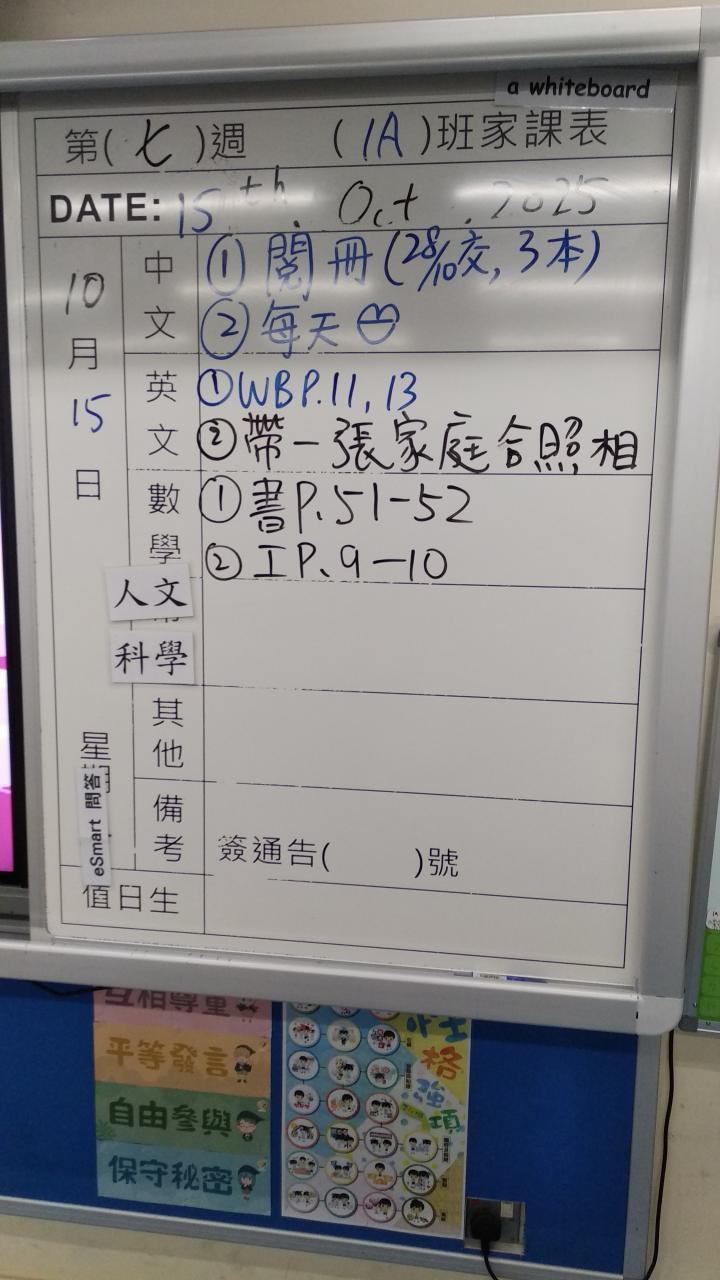 a whiteboard
第(七)週 (1A)班家課表
DATE: 15th. Oct. 2025
10月15日
星
eSmart 問答
中文
① 閱冊(28/10交, 3本)
② 每天
英文
① WB P.11, 13
② 帶一張家庭合照相
數學
① 書P.51-52
② 工P.9-10
人文
科學
其他
備考
簽通告( )號
值日生
互相尊重
平等發言
自由參與
保守秘密
性格強項